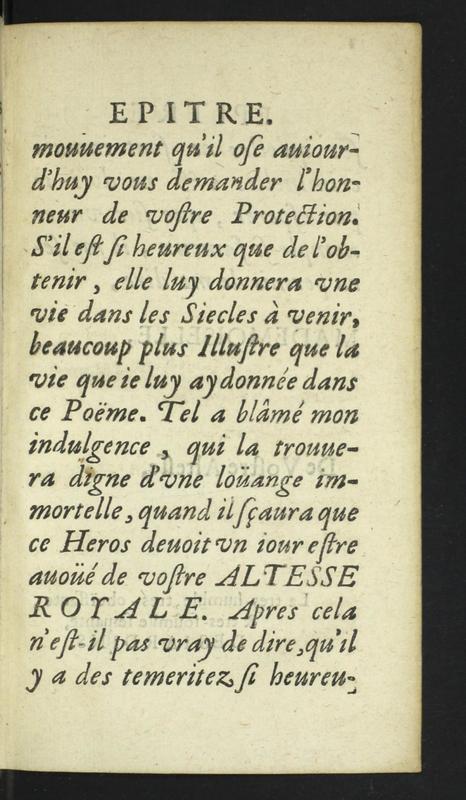 EPITRE.
mouuement qu'il ose auiour-
d'huy vous demander l'hon-
neur de vostre Protection.
S'il est si heureux que de l'ob-
tenir, elle luy donnera vne
vie dans les Siecles à venir,
beaucoup plus Illustre que la
vie que ie luy ay donnée dans
ce Poëme. Tel a blâmé mon
indulgence, qui la trouue-
ra digne d'vne loüange im-
mortelle, quand il sçaura que
ce Heros deuoit vn iour estre
auoüé de vostre ALTESSE
ROYALE. Apres cela
n'est-il pas vray de dire, qu'il
y a des temeritez si heureu-